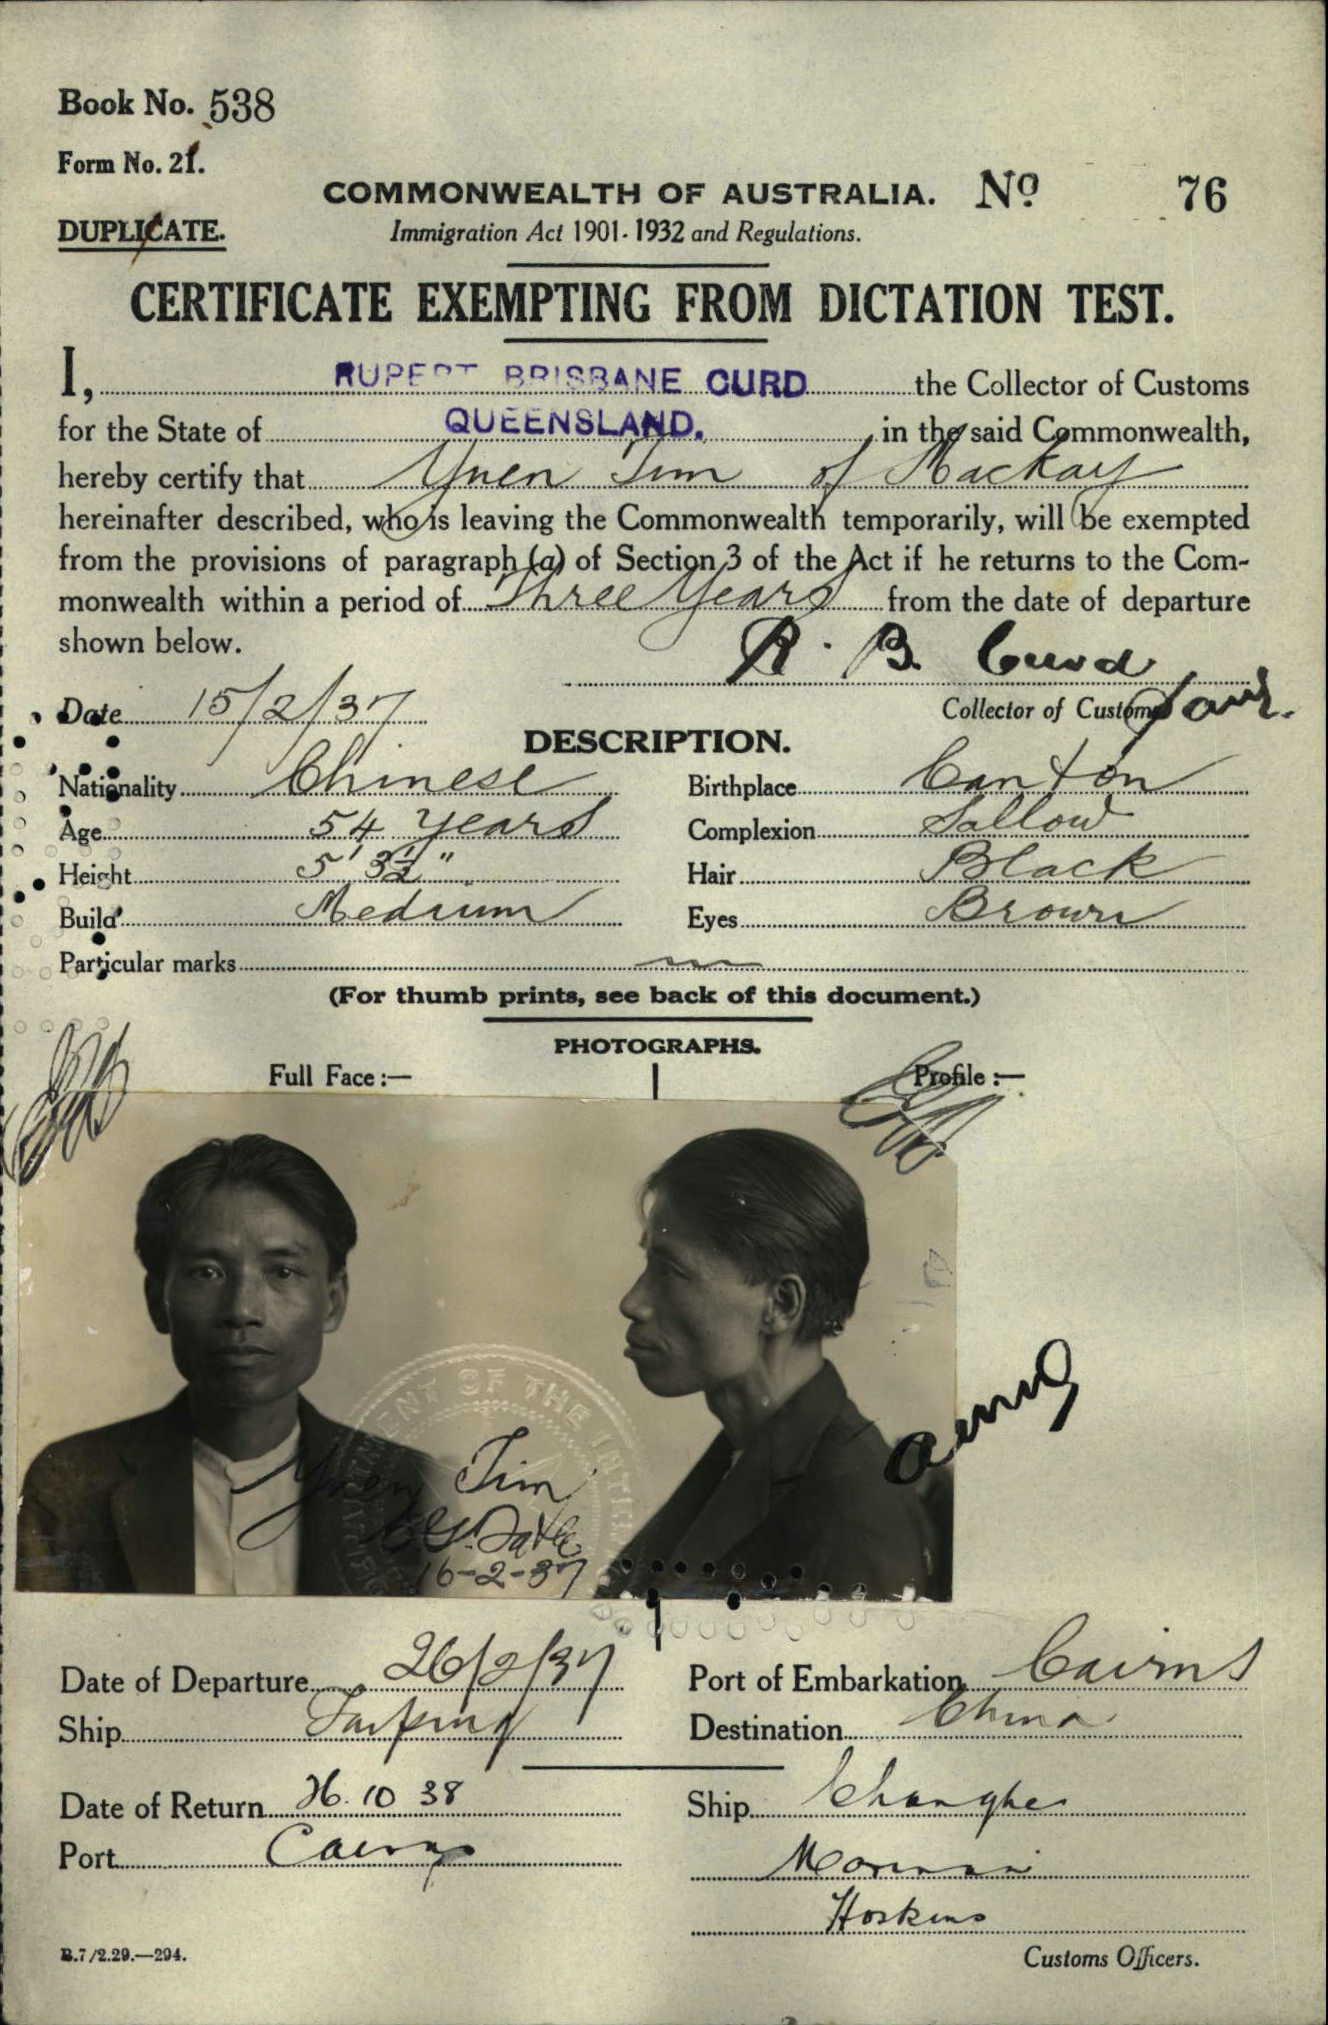 Book No. 538
Form No. 21.
COMMONWEALTH OF AUSTRALIA. No 76
DUPLICATE.
Immigration Act 1901-1932 and Regulations.
CERTIFICATE EXEMPTING FROM DICTATION TEST.
I, RUPERT BRISBANE CURD the Collector of Customs
for the State of QUEENSLAND. in the said Commonwealth,
hereby certify that Yuen Tim of Mackay
hereinafter described, who is leaving the Commonwealth temporarily, will be exempted
from the provisions of paragraph (a) of Section 3 of the Act if he returns to the Com-
monwealth within a period of Three Years from the date of departure
shown below.
R. B. Curd
Date 15/2/37
Collector of Customs
DESCRIPTION.
Nationality Chinese Birthplace Canton
Age 54 Years Complexion Sallow
Height 5' 3½" Hair Black
Build Medium Eyes Brown
Particular marks
(For thumb prints, see back of this document.)
PHOTOGRAPHS.
Full Face:— Profile:—
MENT OF THE INTE
Yuen Tim
16-2-37
Date of Departure 26/2/37 Port of Embarkation Cairns
Ship Taiping Destination China
Date of Return 26.10 38 Ship Changte
Port Cairns
Hoskins
B.7/2.29.—294.
Customs Officers.